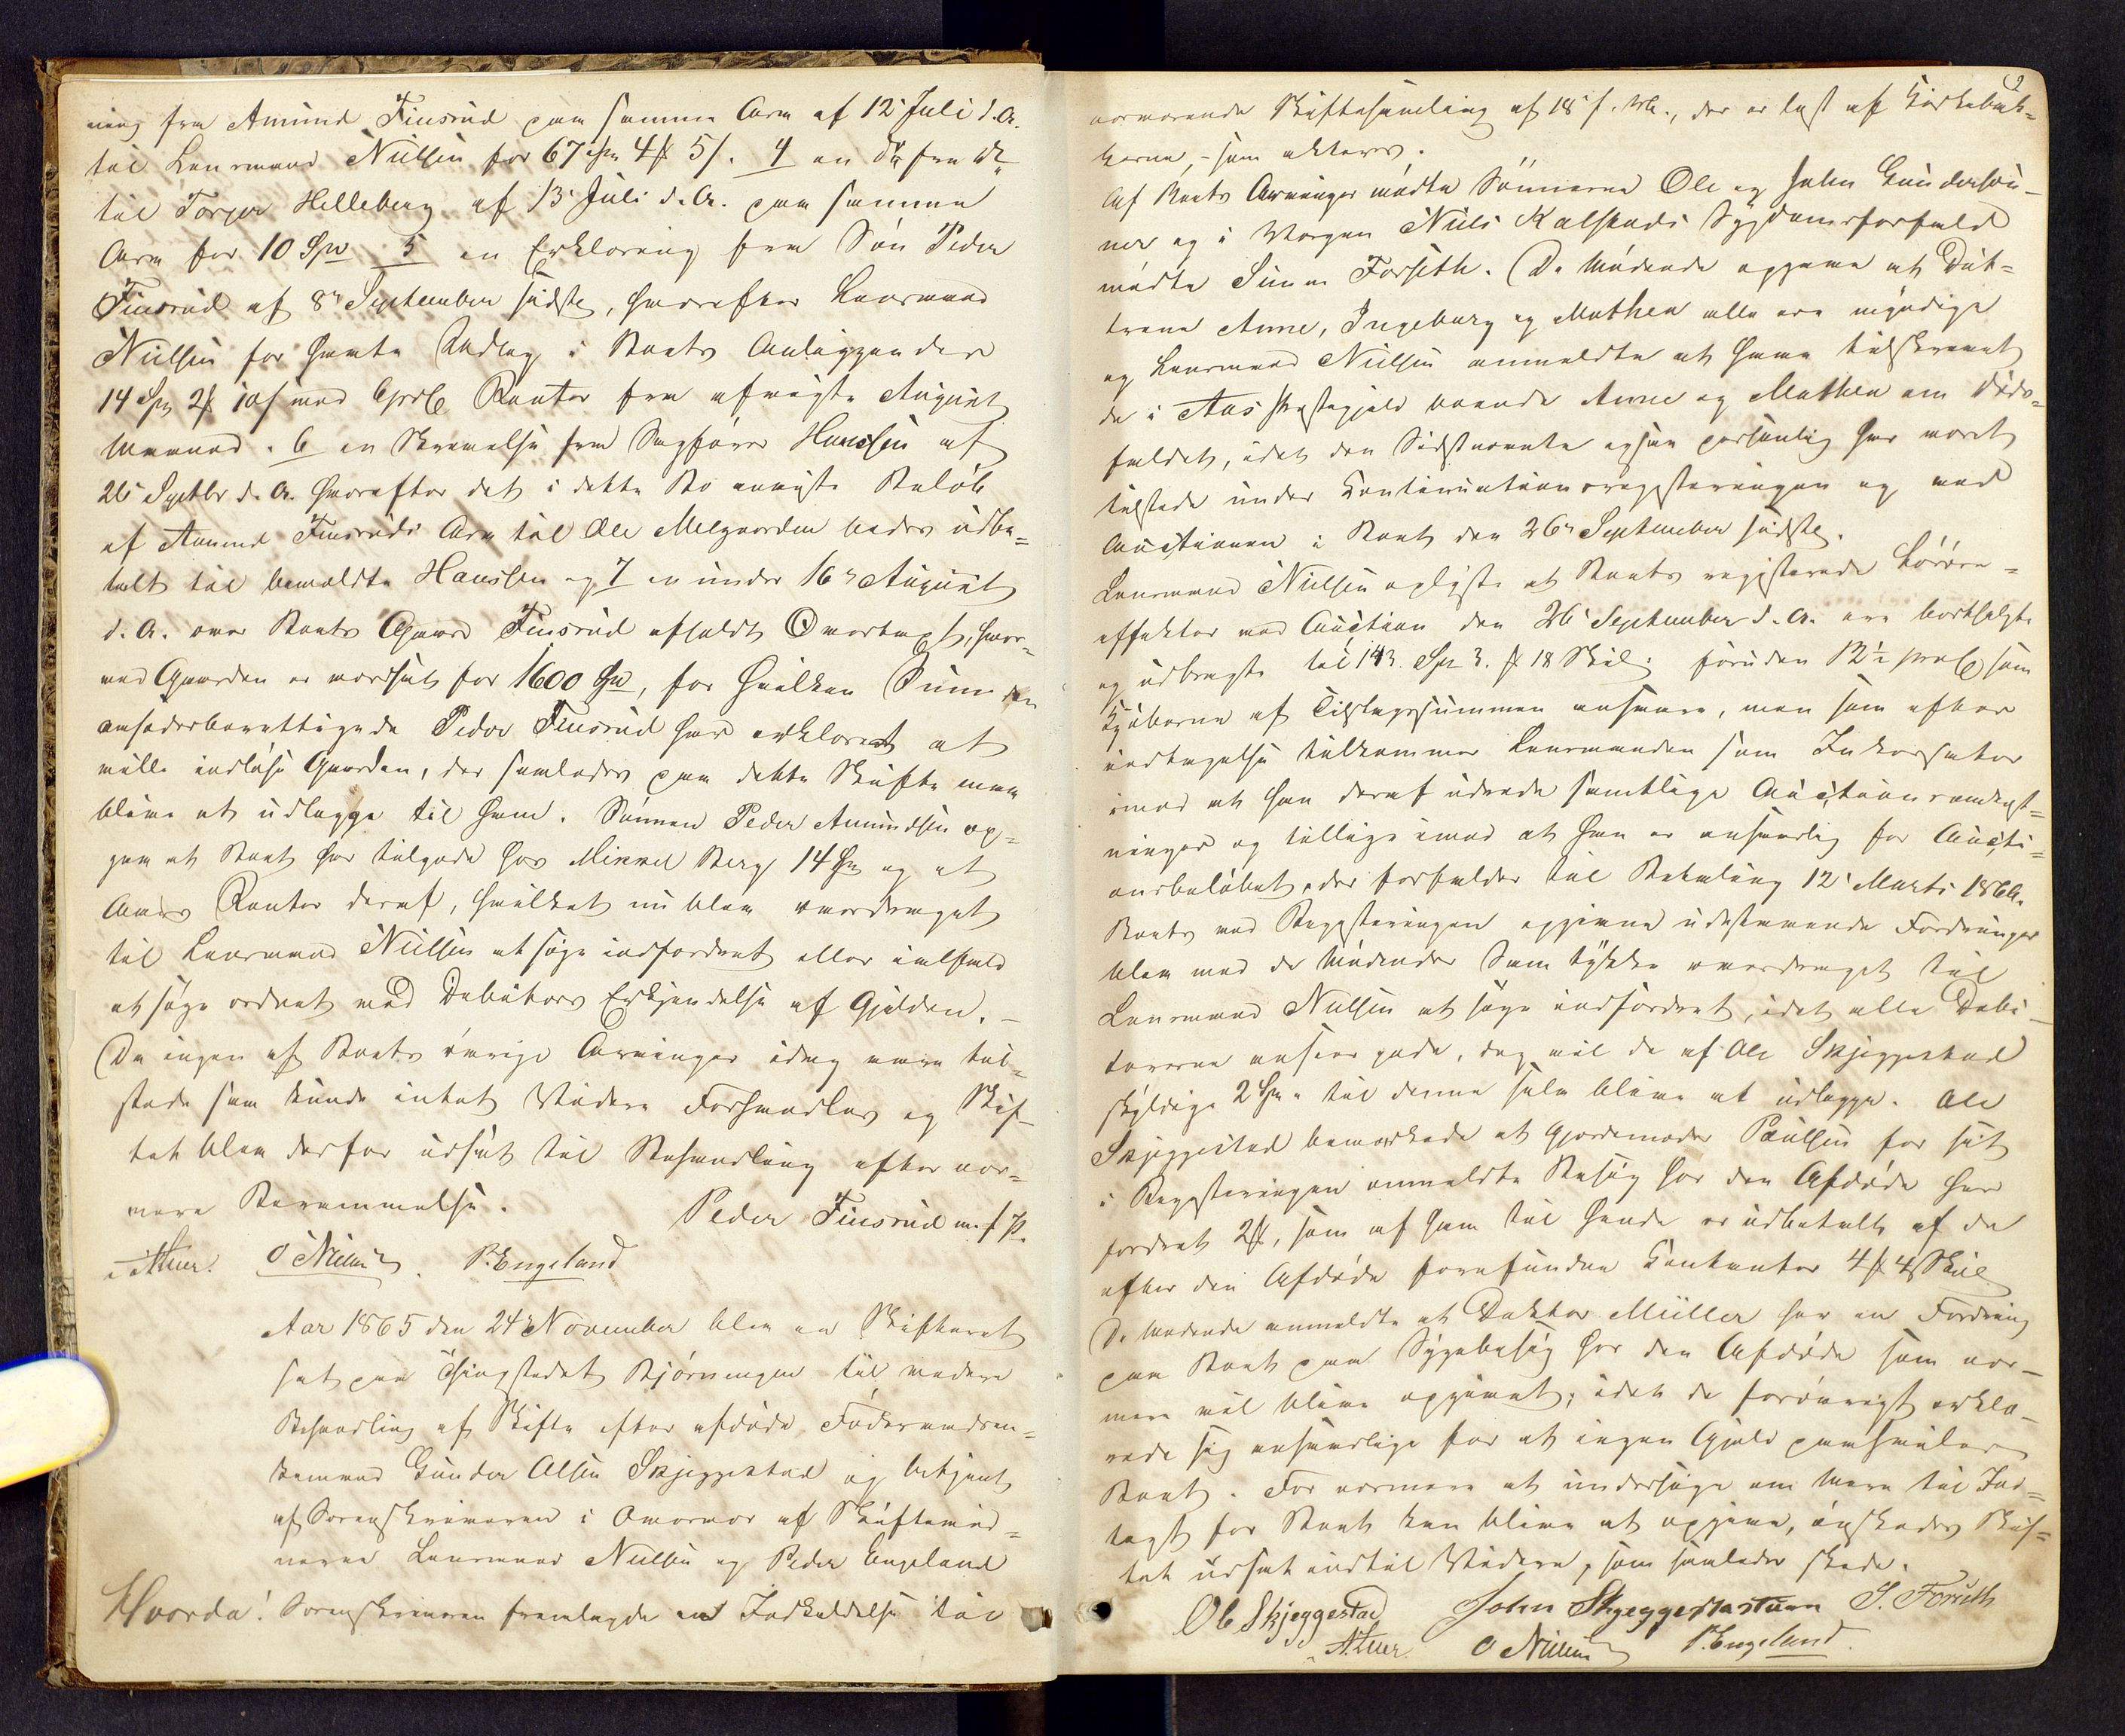 ning fra Amund Finsrud paa samme Arv af 12' Juli d. A.
til Lensmand Nielsen for 67 Spd 4 ₻ 5 s. 4 en do fra do
til Torger Helleberg af 13' Juli d. A. paa samme
Arv for 10 Spd 5 en Erklæring fra Søn Peder
Finsrud af 8de September sidste, hvorefter Lensmand
Nielsen for havte Udlæg i Boets Anliggender
14 Spd 2 ₻ 10 s med 6 prC Renter fra afvigte August
Maaned. 6 en Skrivelse fra Sagfører Hanssen af
26' Septbr d. A. hvorefter det i dette Bo anviste Beløb
af Amund Finsruds Arv til Ole Melgaarden bedes udbe=
talt til bemeldte Hanssen og 7 en under 16de August
d. A. over Boets Gaard Finsrud afholdt Overtaxt, hvor=
ved Gaarden er værdsat for 1600 Spd, for hvilken Sum den
aasædesberettigede Peder Finsrud har erklæret at
ville indløse Gaarden, der saaledes paa dette Skifte maa
blive at udlægge til ham. Sønnen Peder Amundsen op=
gav at Boet har tilgode hos Mikkel Berg 14 Spd og et
Aars Renter deraf, hvilket nu blev overdraget
til Lensmand Nielsen at søge indfordret eller ialfald
at søge ordnet med Debitors Erkjendelse af Gjelden. —
Da ingen af Boets øvrige Arvinger idag vare til=
stede saa kunde intet Videre Forhandles og Skif=
tet blev derfor udsat til Behandling efter nær=
mere Berammelse.
Peder Finsrud m. f. P.
O Nielsen P. Engeland
Aar 1865 den 24de November blev en Skifteret
sat paa Thingstedet Bjørningen til videre
Behandling af Skifte efter afdøde Føderaads=
kemand Gunder Olsen Skjeggestad og betjent
af Sorenskriveren i Overvær af Skiftemæd=
nene Lensmand Nielsen og Peder Engeland
Hvorda! Sorenskriveren fremlagde en Indkaldelse til
2
nærværende Skiftesamling af 18' f. M., der er læst af Kirkebak=
kerne, - som akteres.
Af Boets Arvinger mødte Sønnerne Ole og John Gundersøn=
ner og i Værgen Niels Kalstads Sygdomsforfald
mødte Simen Forseth. De Mødende opgave at Døt=
trene Anne, Ingeborg og Mathea alle ere myndige
og Lensmand Nielsen anmeldte at have tilskrevet
de i Aas Præstegjeld boende Anne og Mathea om Døds=
faldet, idet den Sidstnævnte ogsaa personlig har været
tilstede under Continuationsregistreringen og ved
Auctionen i Boet den 26de September sidste.
Lensmand Nielsen oplyste at Boets registrerede Løsøre=
effekter ved Auction den 26' September d. A. ere bortsolgte
og udbragte til 143 Spd 3 ₻ 18 Skil. foruden 12½ prC som
Kjøberne af Tilslagssummen ansvare, men som efter
Vedtagelse tilkommer Lensmanden som Inkassator
imod at han deraf udrede samtlige Auctionsomkost=
ninger og tillige imod at han er ansvarlig for Aucti=
onsbeløbet, der forfalder til Betaling 12' Marts 1866.
Boets ved Registreringen opgivne udestaaende Fordringer
blev med de Mødendes Samtykke overdraget til
Lensmand Nielsen at søge indfordret, idet alle Debi=
torerne ansees gode, dog vil de af Ole Skjeggestad
skyldige 2 Spd. til denne selv blive at udlægge. Ole
Skjeggestad bemærkede at Gjordemoder Paulsen for sit
i Registreringen anmeldte Besøg hos den Afdøde har
fordret 2 ₻, som af ham til hende er udbetalt af de
efter den Afdøde forefundne Contanter 4 ₻ 4 Skil
De Mødende anmeldte at Doktor Müller har en Fordring
paa Boet paa Sygebesøg hos den Afdøde som nær=
mere vil blive opgivet; idet de forøvrigt erklæ=
rede sig ansvarlige for at ingen Gjeld paahviler
Boet. For nærmere at undersøge om Mere til Ind=
tægt for Boet kan blive at opgive, ønskedes Skif=
tet udsat indtil Videre, som saaledes skede.
Ole Skjeggestad John Skjeggestastuen S. Forseth
O Nielsen P. Engeland